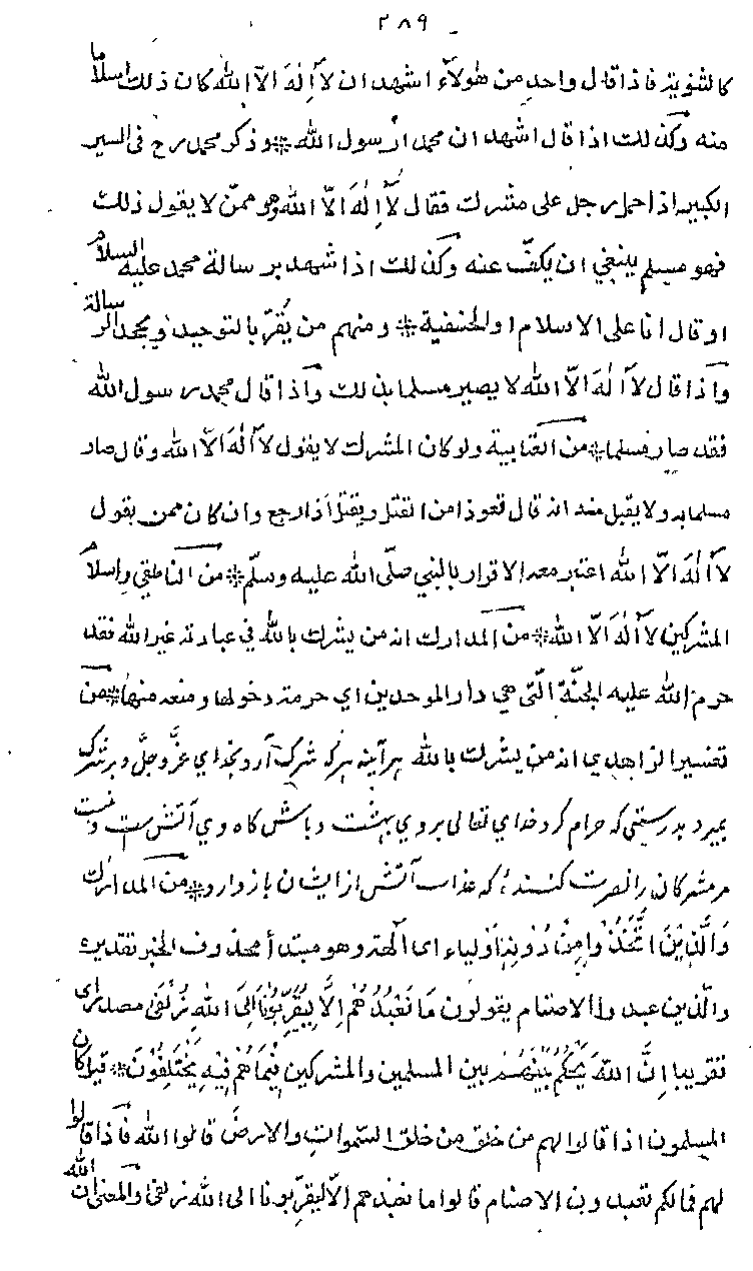 ٢٨٩
كالثنوية فاذا قال واحد من هؤلاء اشهد ان لا اله الا الله كان ذلك اسلاما
منه وكذلك اذا قال اشهد ان محمدا رسول الله * وذكر محمد رح في السير
الكبير اذا حمل رجل على مشرك فقال لا اله الا الله وهو ممن لا يقول ذلك
فهو مسلم ينبغي ان يكف عنه وكذلك اذا شهد برسالة محمد عليه السلام
او قال انا على الاسلام او الحنفية * ومنهم من يُقرّ بالتوحيد ويجحد الرسالة
واذا قال لا اله الا الله لا يصير مسلما بذلك واذا قال محمد رسول الله
فقد صار مسلما * من العتابية ولو كان المشرك لا يقول لا اله الا الله وقال صار
مسلما به ولا يقبل منه انه قال تعوذا من القتل ويقتل اذا رجع وان كان ممن يقول
لا اله الا الله اعتبر معه الاقرار بالنبي صلّى الله عليه وسلّم * من الناطفي واسلام
المشركين لا اله الا الله * من المدارك انه من يشرك بالله في عبادته غير الله فقد
حرم الله عليه الجنّة الّتي هي دار الموحدين اي حرمه دخولها ومنعه منها * من
تفسير الزاهدي انه من يشرك بالله هر آينه هركه شرك آرد بخداي عزّ وجلّ و بر شرك
بميرد بدرستي كه حرام كرد خداي تعالى بروي بهشت و باش كاه وي آتش ست و نيست
مر مشركان را نصرت كنند كه عذاب آتش از ايشان باز دارد * من المدارك
وَالَّذِينَ اتَّخَذُوا مِنْ دُونِهِ اَوْلياء اى آلهة وهو مبتدأ محذوف الخبر تقديره
والّذين عبدوا الاصنام يقولون مَا نَعْبُدُهُمْ اِلَّا لِيُقَرِّبُونَا اِلَى اللهِ زُلْفَى مصدر اى
تقريبا اِنَّ اللهَ يَحْكُمُ بَيْنَهُمْ بين المسلمين والمشركين فِيمَا هُمْ فِيهِ يَخْتَلِفُونَ * قيل كان
المسلمون اذا قالوا لهم من خلق السموات والارض قالوا الله فاذا قالوا
لهم فمالكم تعبدون الاصنام قالوا ما نعبدهم الّا ليقرّبونا الى الله زلفى والمعنى ان الله